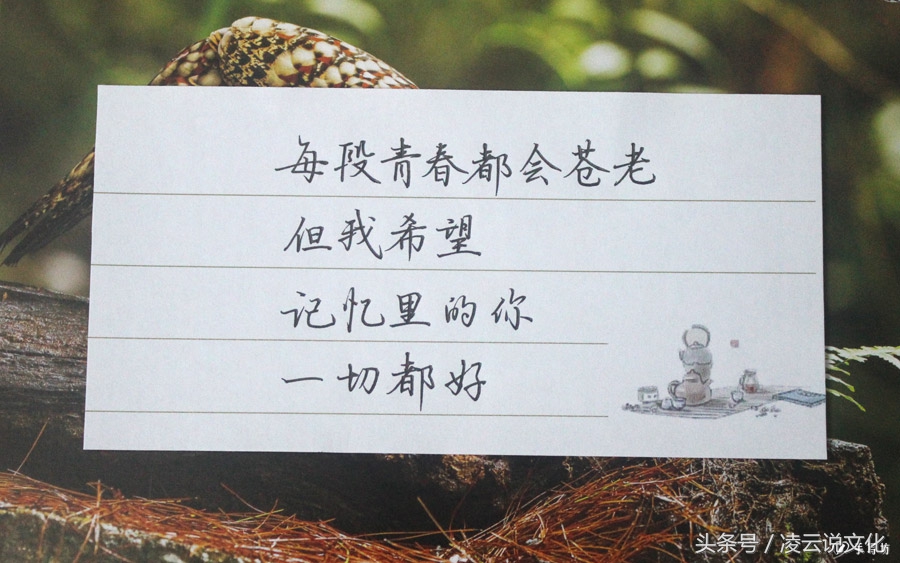 每段青春都会苍老
但我希望
记忆里的你
一切都好
头条号 / 凌云说文化